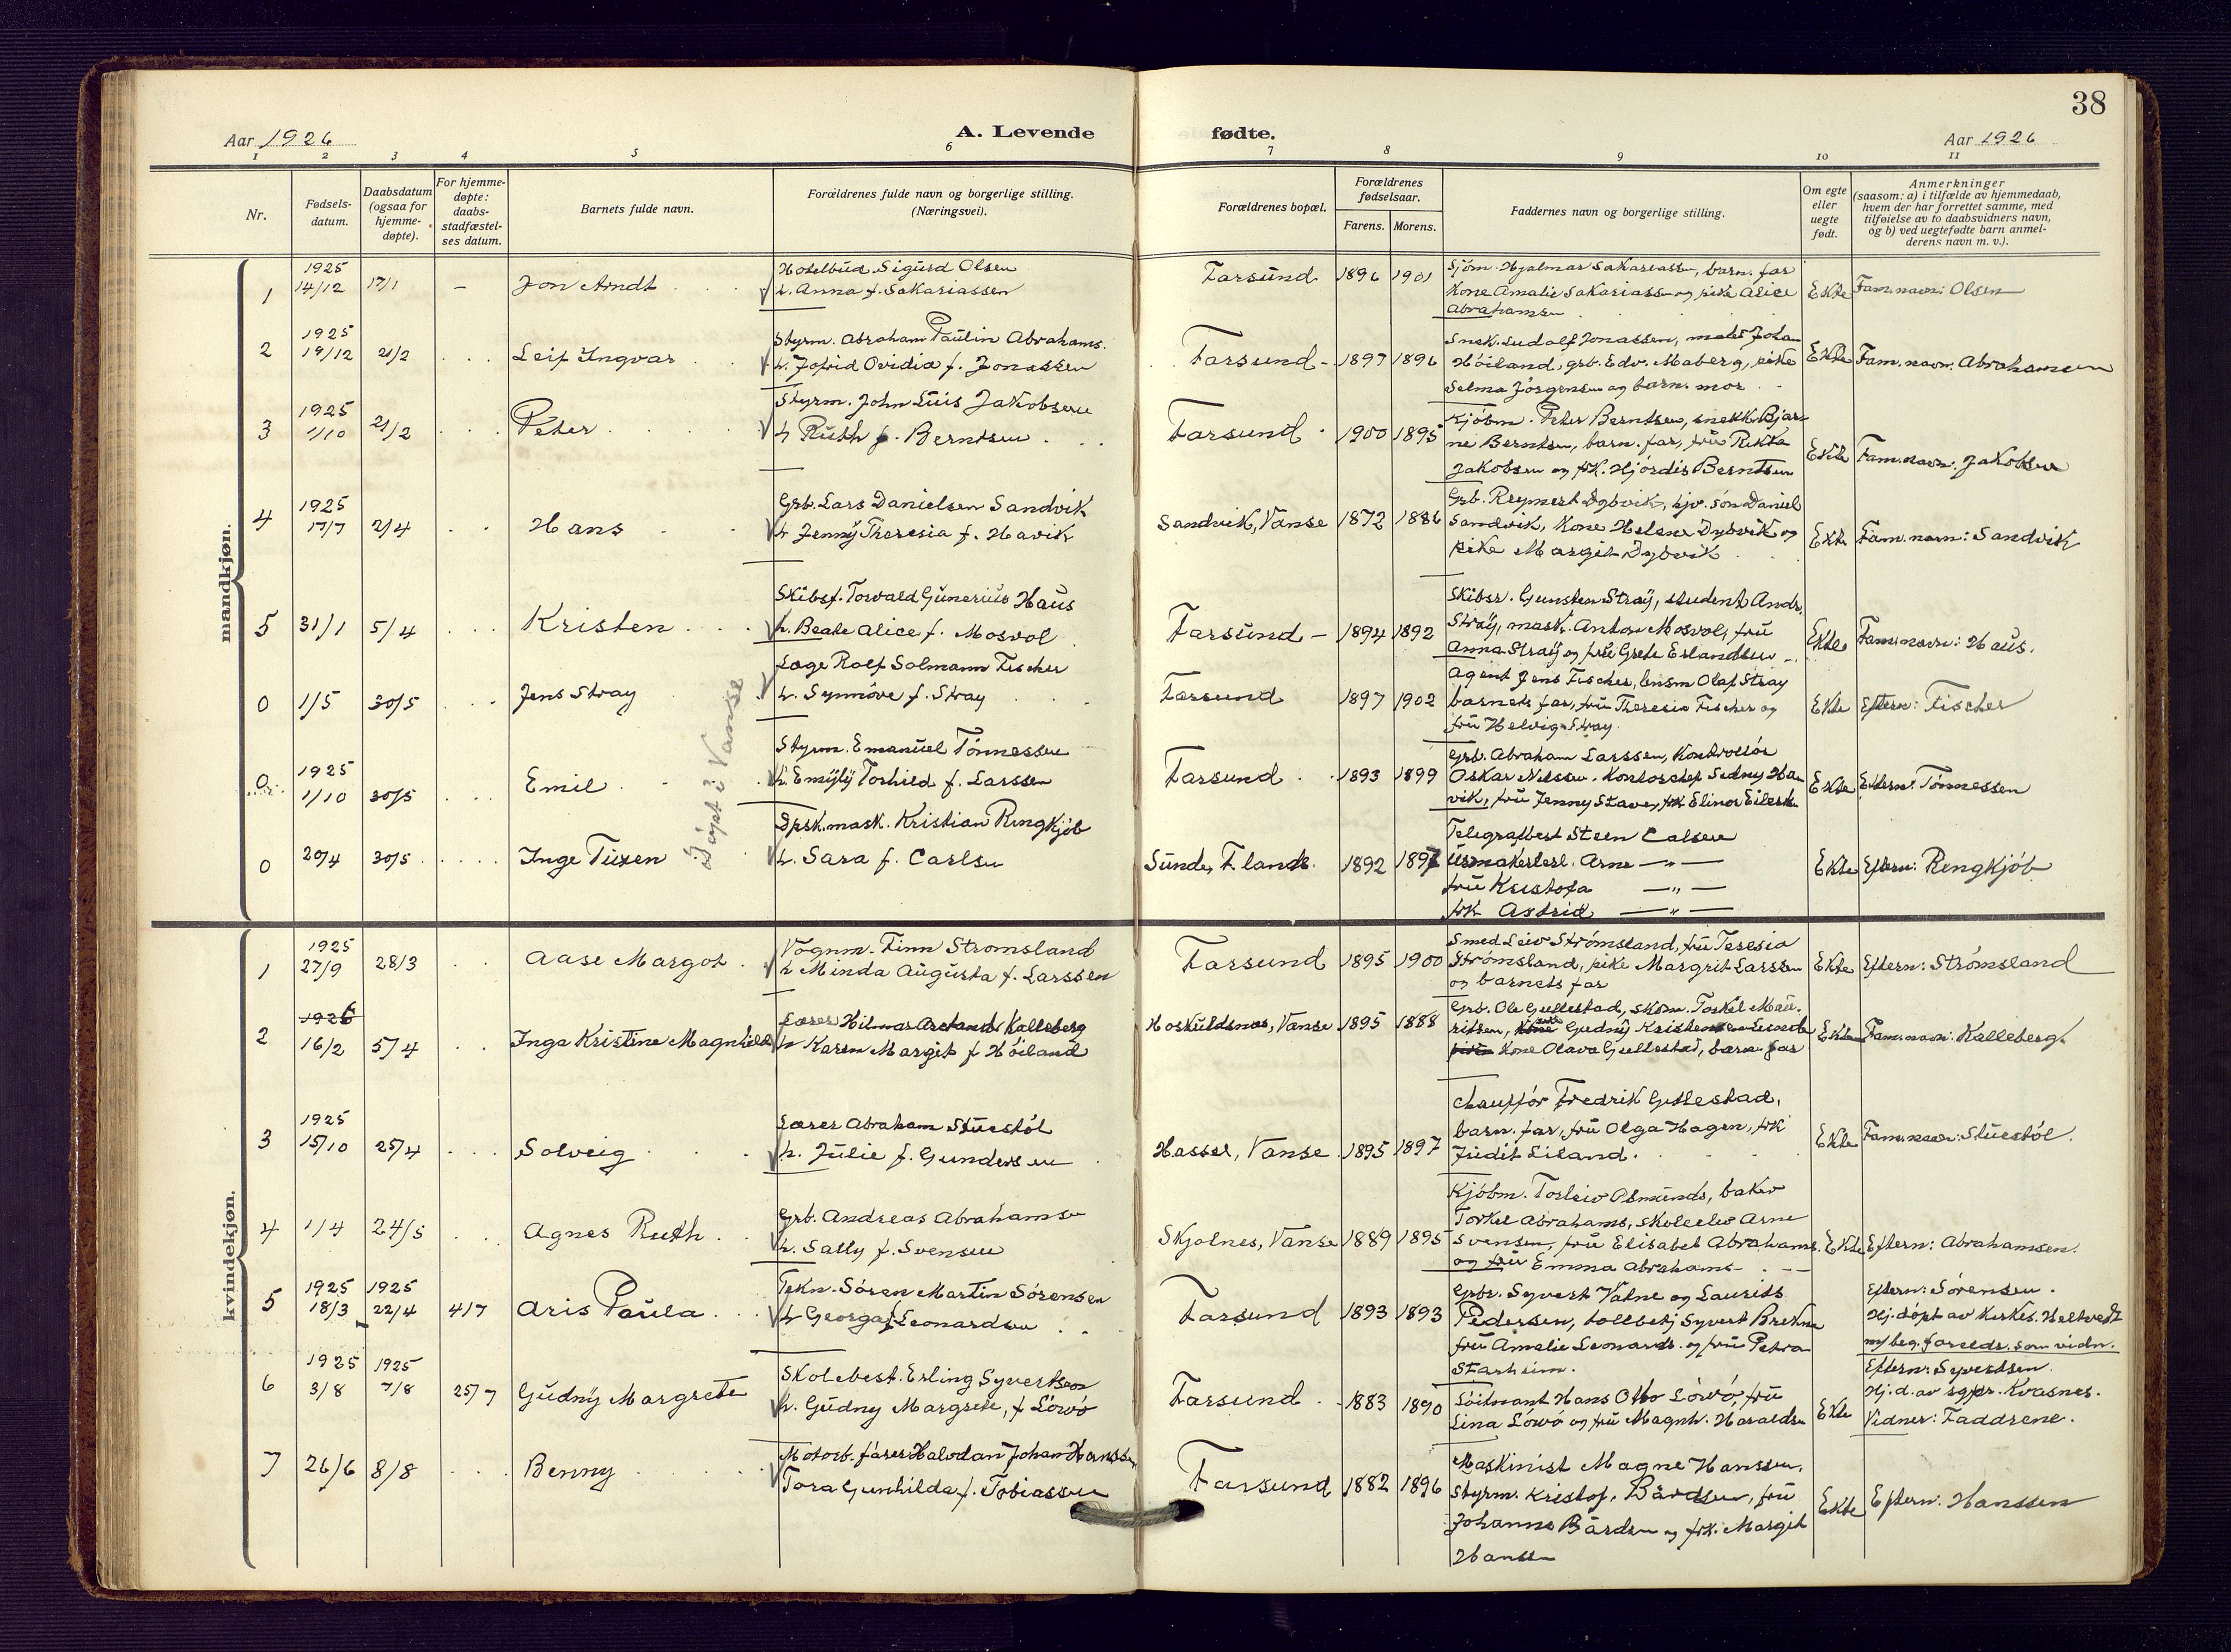 38
Aar 1926
A. Levende
fødte.
Aar 1926
1 2 3 4 5 6 7 8 9 10 11
Nr.
Fødsels-
datum.
Daabsdatum
(ogsaa for
hjemme-
døpte).
For hjemme-
døpte:
daabs-
stadfæstel-
ses datum.
Barnets fulde navn.
Forældrenes fulde navn og borgerlige stilling.
(Næringsvei).
Forældrenes bopæl.
Forældrenes
fødselsaar.
Farens. Morens.
Faddernes navn og borgerlige stilling.
Om egte
eller
uegte
født.
Anmerkninger
(saasom: a) i tilfælde av hjemmedaab,
hvem der har forrettet samme, med
tilføielse av to daabsvidners navn,
og b) ved uegtefødte barn anmel-
derens navn m. v.).
mandkjøn.
1
1925
14/12
17/1
–
Jon Arndt
Hotelbud Sigurd Olsen
h. Anna f. Sakariassen
Farsund
1896 1901
Sjøm. Hjalmar Sakariassen, barn. far
Kone Amalie Sakariassen og pike Alice
Abrahamsen
Ekte
Fam.navn: Olsen
2
1925
19/12
21/2
Leif Ingvar
Styrm. Abraham Paulin Abrahams.
h. Jofrid Ovidia f. Jonassen
Farsund
1897 1896
Snek. Ludolf Jonassen, maler Johan
Høiland, grb. Edv. Maberg, pike
Selma Jørgensen og barn. mor
Ekte
Fam.navn: Abrahamsen
3
1925
1/10
21/2
Peter
Styrm. John Luis Jakobsen
h Ruth f. Berntsen
Farsund
1900 1895
Kjøbm. Peter Berntsen, snekk. Bjar-
ne Berntsen, barn. far, fru Rikka
Jakobsen og frk. Hjørdis Berntsen
Ekte
Fam.navn: Jakobsen
4
1925
17/7
2/4
Hans
Grb. Lars Danielsen Sandvik
h Jenny Theresia f. Havik
Sandvik, Vanse
1872 1886
Grb. Reymert Dybvik, hjv. søn Daniel
Sandvik, Kone Helene Dybvik og
pike Margit Dybvik
Ekte
Fam.navn: Sandvik
5
31/1
5/4
Kristen
Skibsf. Torvald Gunerius Haus
h. Beate Alice f. Mosvol
Farsund
1894 1892
Skibsr. Gunsten Stray, student Andr.
Stray, mask. Anton Mosvol, fru
Anna Stray og fru Grete Erlandsen
Ekte
Fam.navn: Haus.
0
1/5
30/5
Jens Stray
Læge Rolf Solmann Fischer
h. Synnøve f. Stray
Farsund
1897 1902
Agent Jens Fischer, lensm Olaf Stray
barnets far, fru Theresia Fischer og
fru Helvig Stray.
Ekte
Eftern: Fischer
Døpt i Vanse
0
1925
1/10
30/5
Emil
Styrm. Emanuel Tønnessen
h. Emÿlÿ Torhild f. Larssen
Farsund
1893 1899
Grb. Abraham Larssen, Kontrollør
Oskar Nilssen, Kontorchef Sidney Ha-
vik, fru Jenny Staver, frk Elinor Eilertsen
Ekte
Eftern: Tønnessen
0
20/4
30/5
Inge Tuxen
Dpsk.mask. Kristian Ringkjøb
h. Sara f. Carlsen
Sunde, F. land.
1892 1897
Telegrafbest Steen Calsen
urmakerlærl. Arne — " —
fru Kristofa — " —
frk Astrid — " —
Ekte
Eftern: Rengkjøb
kvindekjøn.
1
1925
27/9
28/3
Aase Margot
Vognm. Finn Strømsland
h Minda Augusta f. Larssen
Farsund
1895 1900
Smed Leiv Strømsland, fru Teresia
Strømsland, pike Margrit Larssen
og barnets far
Ekte
Eftern: Strømsland
2
1926
16/2
5/4
Inga Kristine Magnhild
Lærer Hilmar Kalleberg
h Karen Margit f Høiland
Hoskuldsnes, Vanse
1895 1888
Grb. Ole Gullestad, skom. Torkel Mau-
ritsen, Gudny Kristensen Lunde
Kone Olava Gullestad, barn. far
Ekte
Fam.navn: Kalleberg.
3
1925
15/10
25/4
Solveig
Lærer Abraham Stuestøl
h. Julie f. Gundersen
Hassel, Vanse
1895 1897
Chauffør Fredrik Gullestad,
barn. far, fru Olga Hagen, frk
Judit Liland.
Ekte
Fam.navn: Stuestøl.
4
1/4
24/5
Agnes Ruth
Grb. Andreas Abrahamsen
h. Sally f. Svensen
Skjolnes, Vanse
1889 1895
Kjøbm. Torleiv Osmunds, baker
Torkel Abrahams, skoleelev Arne
Svensen, fru Elisabet Abrahams.
og fru Emma Abrahams
Ekte
Eftern: Abrahamsen.
5
1925 1925
18/3 22/4
4/7
Aris Paula
Tekn. Søren Martin Sørensen
h Georga f Leonardsen
Farsund
1893 1893
Grbr. Syvert Vatne og Laurits
Pedersen, tollbetj Syvert Brekne
fru Amalie Leonards. og fru Petra
Starheim.
Eftern: Sørensen.
Hj. døpt av Heltvedt
m/ beg. forældr. som vidn.
6
1925 1925
3/8 7/8
25/7
Gudnÿ Margrete
Skolebest. Erling Syvertsen
h. Gudny Margrete, f Løwø
Farsund
1883 1890
Løitnant Hans Otto Løwø, fru
Lina Løwø og fru Magnh. Haraldsen
Ekte
Eftern: Syvertsen.
Hj. d. av sgpr. Kvasnes.
Vidner: Faddrene.
7
26/6
8/8
Benny
Motorb.fører Halvdan Johan Hanssen
Tora Gunhilda f. Tobiassen
Farsund
1882 1896
Maskinist Magne Hanssen,
Styrm. Kristof. Bårdsen, fru
Johanne Bårdsen og frk. Margit
Hanssen
Ekte
Eftern: Hanssen